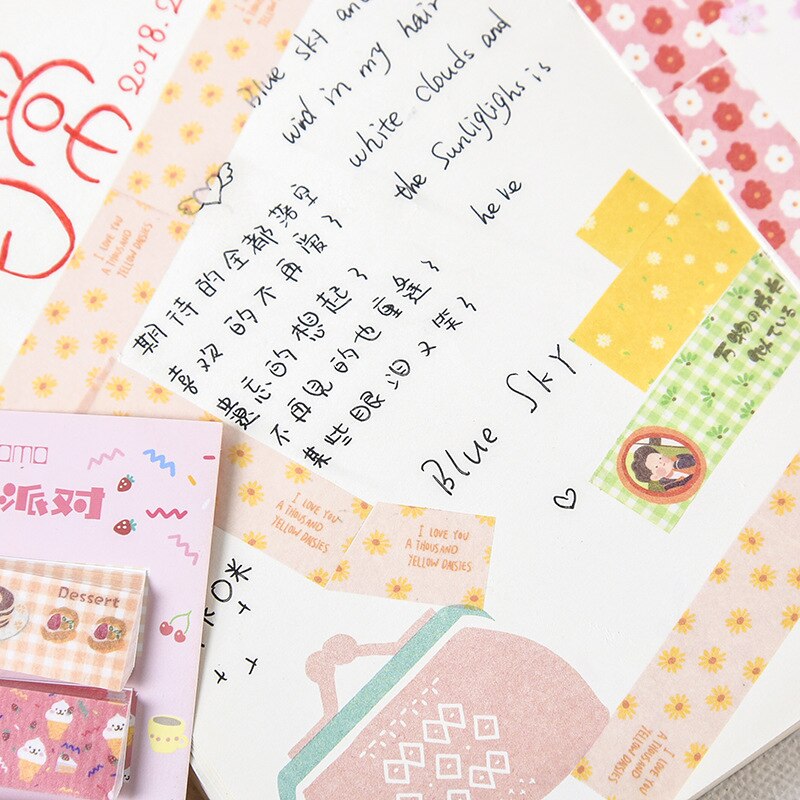 2018.2
Blue sky and
wind in my hair
white clouds and
the Sunliglighs is
heke
期待的全都落空
喜欢的不再爱了
遗忘的想起了
不再见的也重逢了
某些眼泪又哭了
Blue SKY
I LOVE YOU
A THOUSAND
YELLOW DAISIES
I LOVE YOU
A THOUSAND
YELLOW DAISIES
I LOVE YOU
A THOUSAND
YELLOW DAISIES
I LOVE YOU
A THOUSAND
YELLOW DAISIES
万物の成长
似ている
派对
Dessert